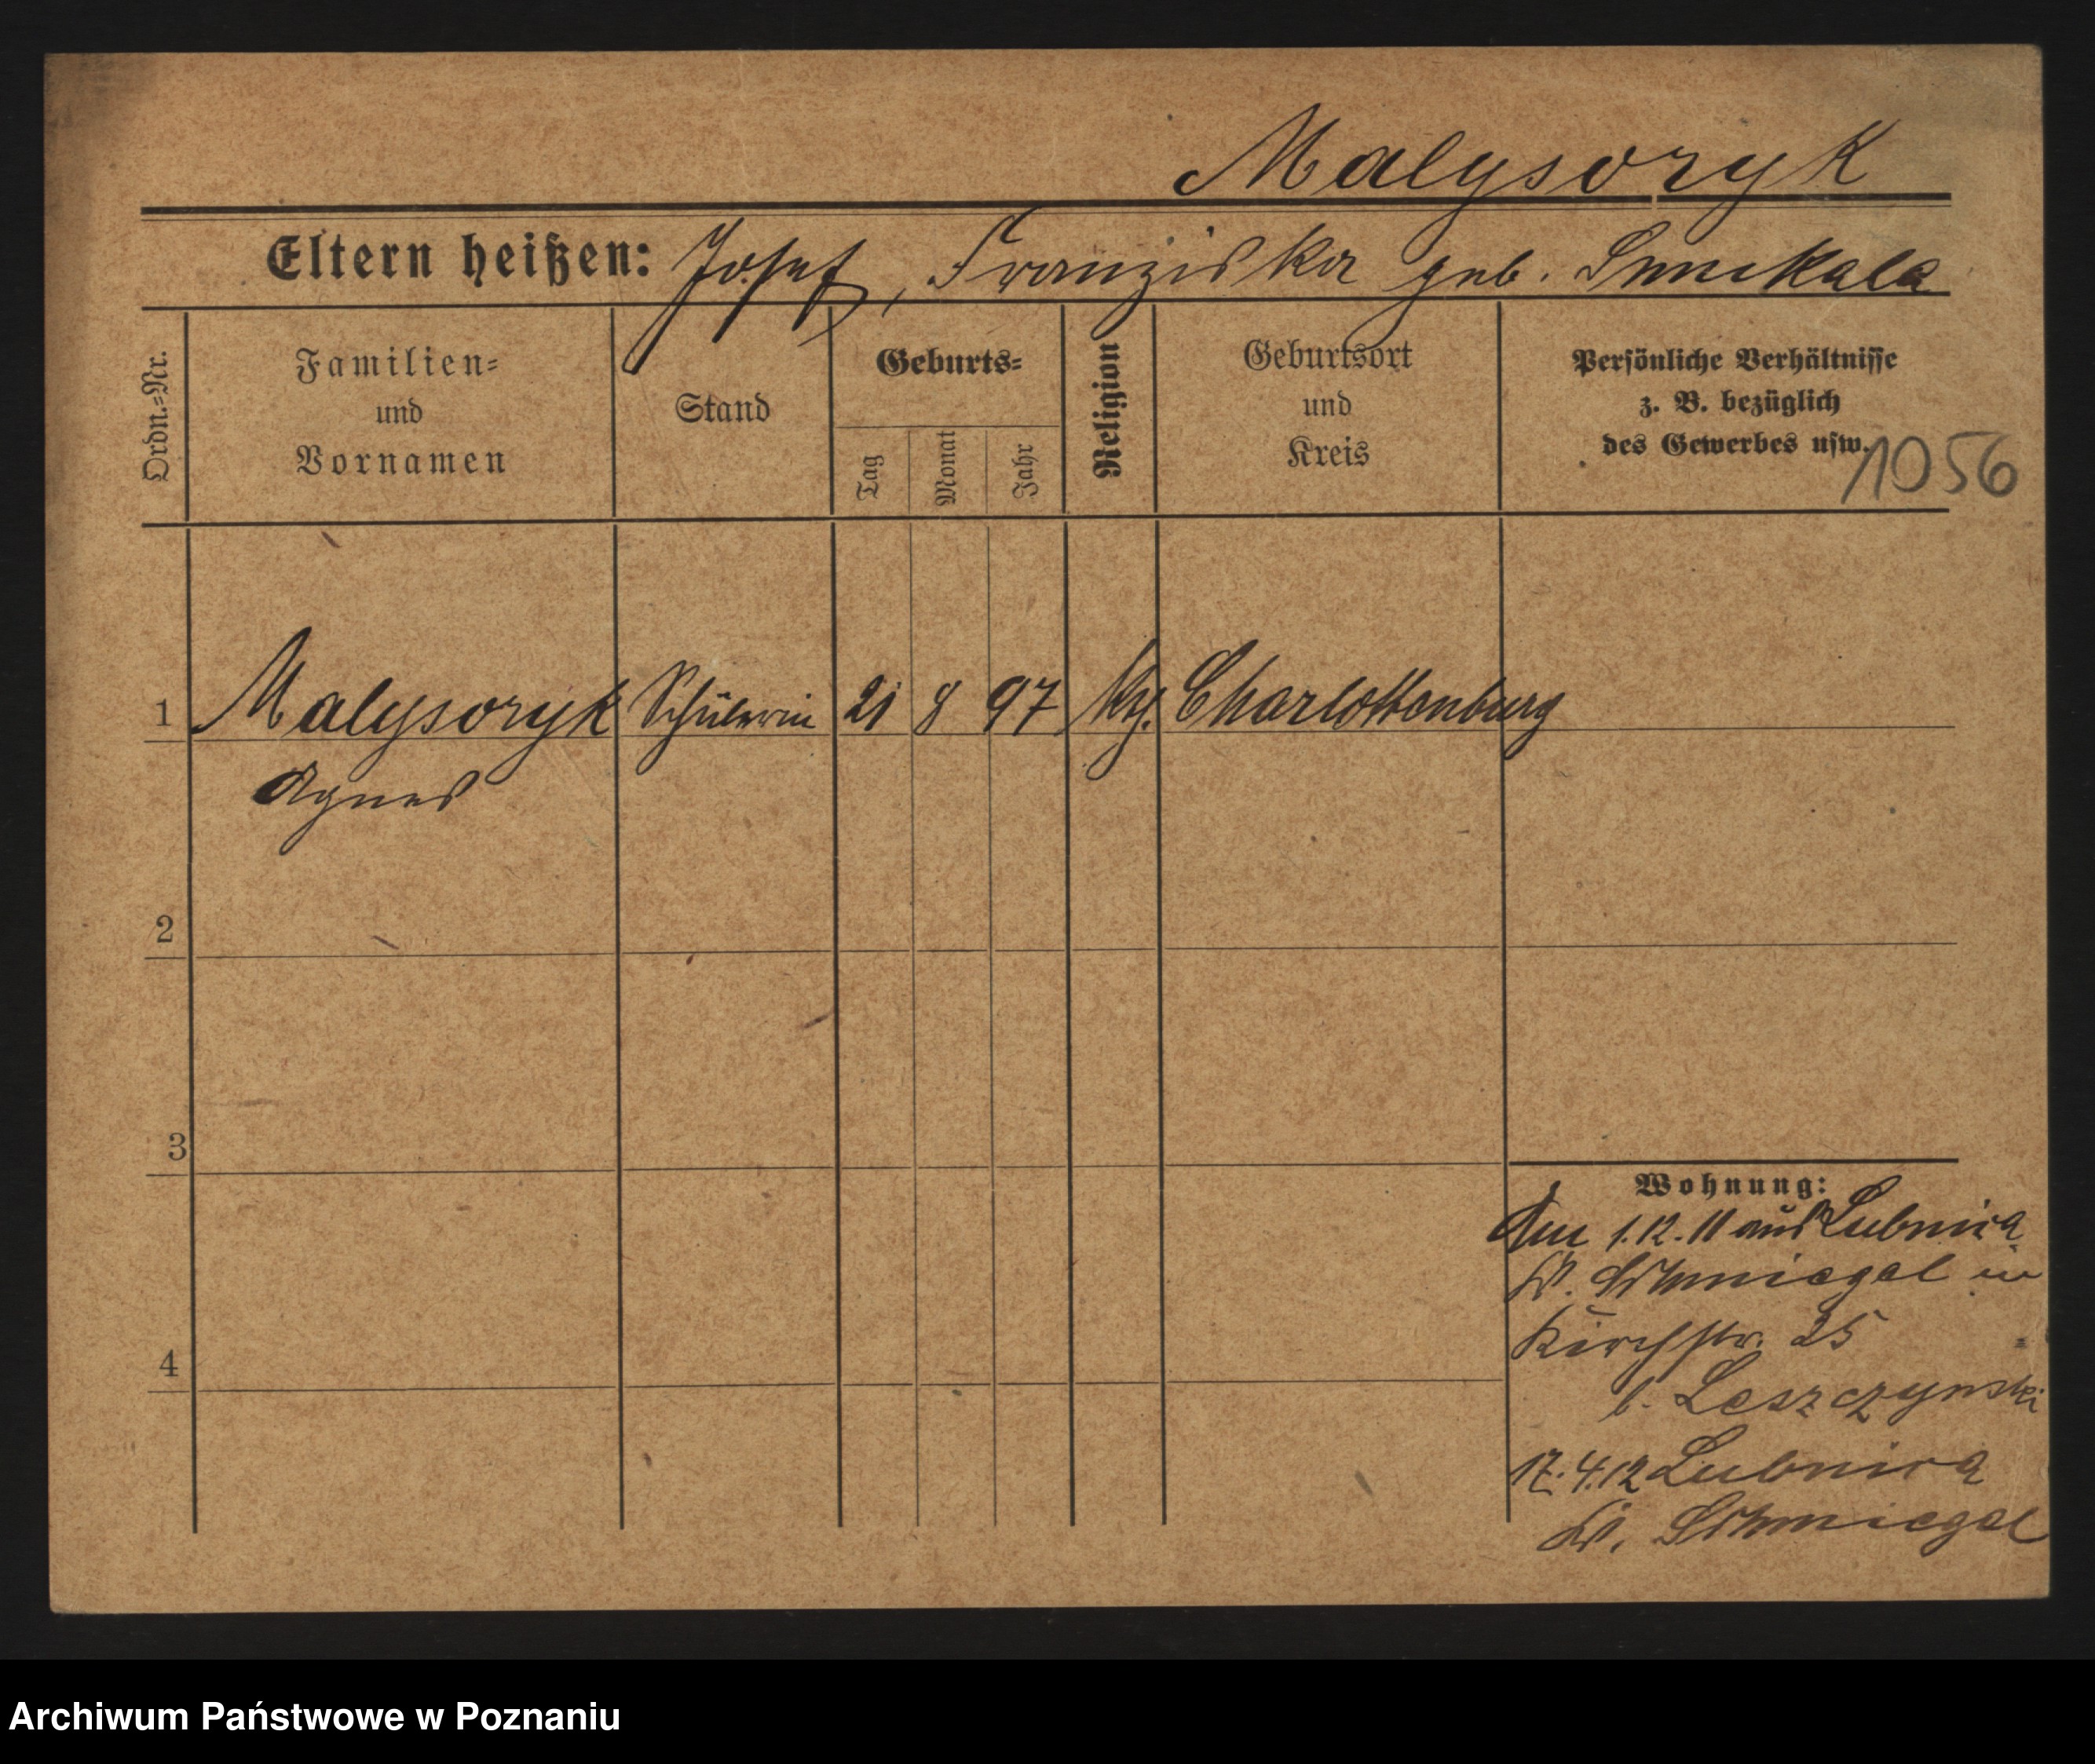 Malysozyk
Eltern heißen: Josef, Franziska geb. Smekala
Ordn.=Nr.
Familien=
und
Vornamen
Stand
Geburts=
Tag
Monat
Jahr
Religion
Geburtsort
und
Kreis
Persönliche Verhältnisse
z. B. bezüglich
des Gewerbes usw.
1056
1 Malysozyk Schülerin 21 8 97 Charlottenburg
Agnes
2
3
4
Wohnung:
Am 1.12.11 aus Lubnica
Kr. Schmiegel in
Kirchstr. 35
b. Leszczynski
17.4.12 Lubnica
Kr. Schmiegel
Archiwum Państwowe w Poznaniu